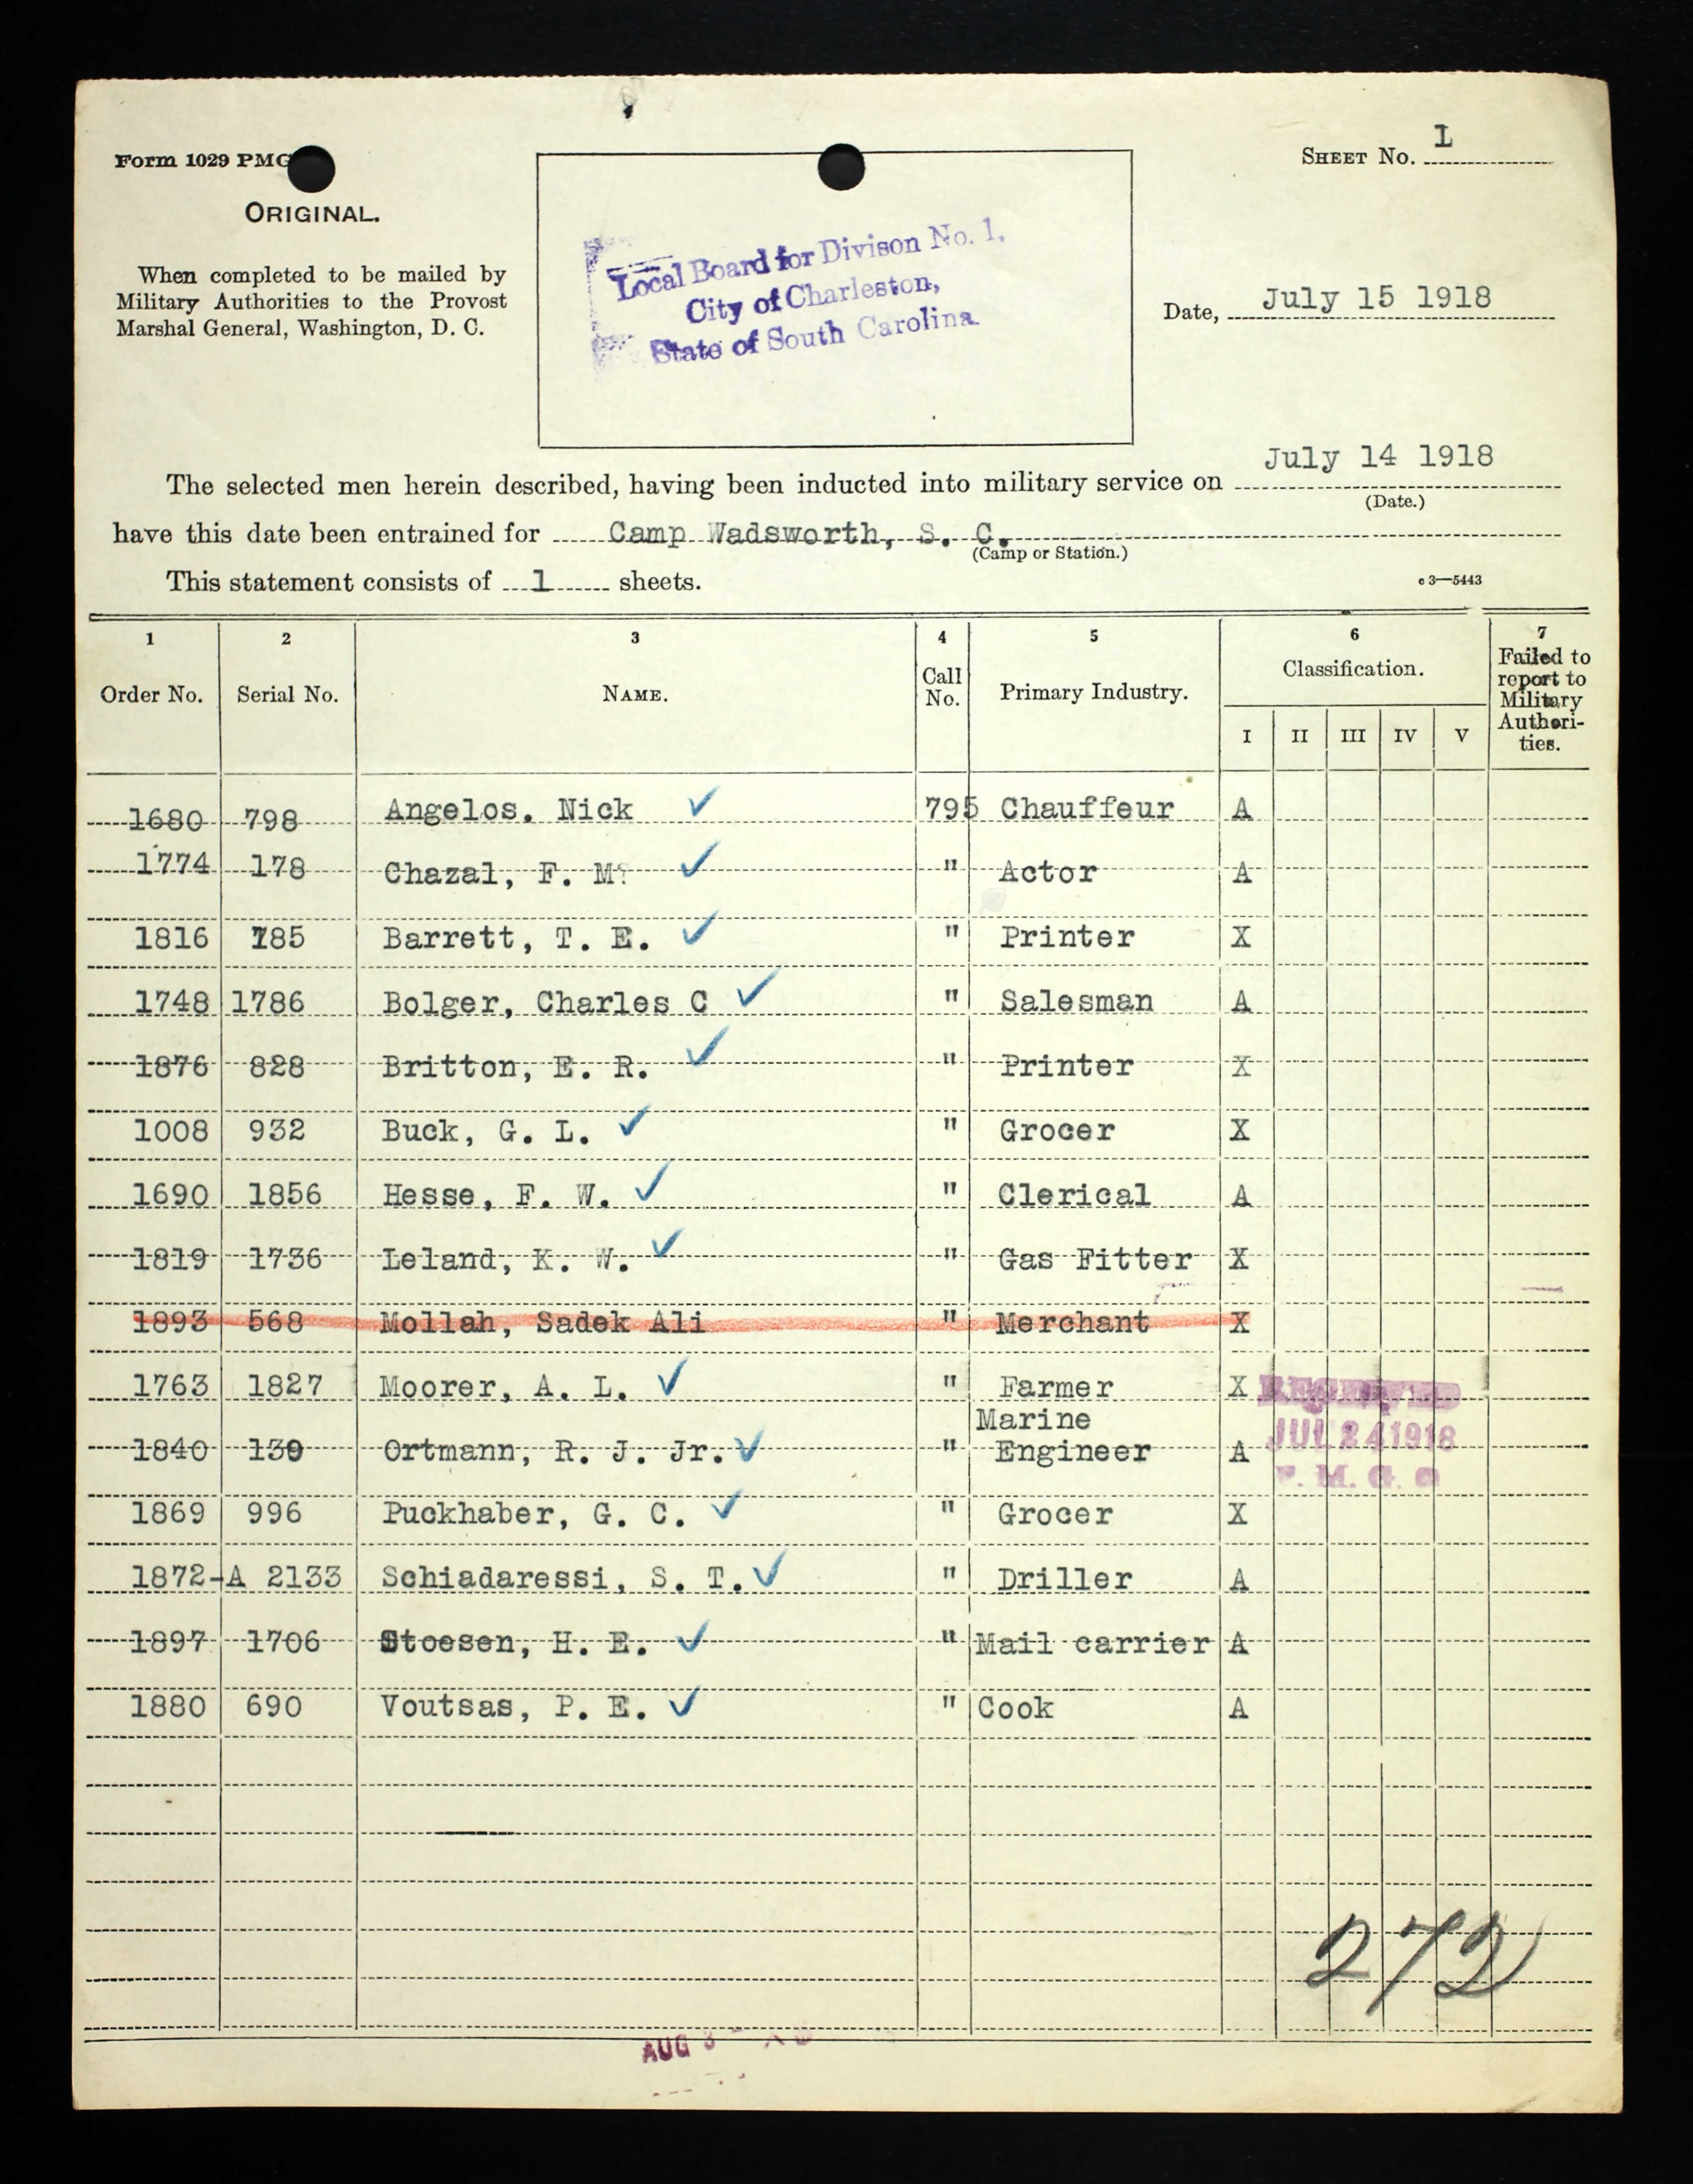 Form 1029 PMG
SHEET No. 1
ORIGINAL.
When completed to be mailed by
Military Authorities to the Provost
Marshal General, Washington, D. C.
Local Board for Divison No. 1,
City of Charleston,
State of South Carolina
Date, July 15 1918
The selected men herein described, having been inducted into military service on July 14 1918
(Date.)
have this date been entrained for Camp Wadsworth, S. C.
(Camp or Station.)
This statement consists of 1 sheets.
c 3—5443
1 2 3 4 5 6 7
Order No. Serial No. NAME. Call No. Primary Industry. Classification. Failed to report to Military Authori-ties.
I II III IV V
1680 798 Angelos, Nick ✓ 795 Chauffeur A
1774 178 Chazal, F. M. ✓ " Actor A
1816 785 Barrett, T. E. ✓ " Printer X
1748 1786 Bolger, Charles C ✓ " Salesman A
1876 828 Britton, E. R. ✓ " Printer X
1008 932 Buck, G. L. ✓ " Grocer X
1690 1856 Hesse, F. W. ✓ " Clerical A
1819 1736 Leland, K. W. ✓ " Gas Fitter X
1893 568 Mollah, Sadek Ali " Merchant X
1763 1827 Moorer, A. L. ✓ " Farmer X
RECEIVED
Marine
1840 139 Ortmann, R. J. Jr. ✓ " Engineer A
JUL 24 1918
P. M. G. O
1869 996 Puckhaber, G. C. ✓ " Grocer X
1872-A 2133 Schiadaressi, S. T. ✓ " Driller A
1897 1706 Stoesen, H. E. ✓ " Mail carrier A
1880 690 Voutsas, P. E. ✓ " Cook A
272
AUG 3